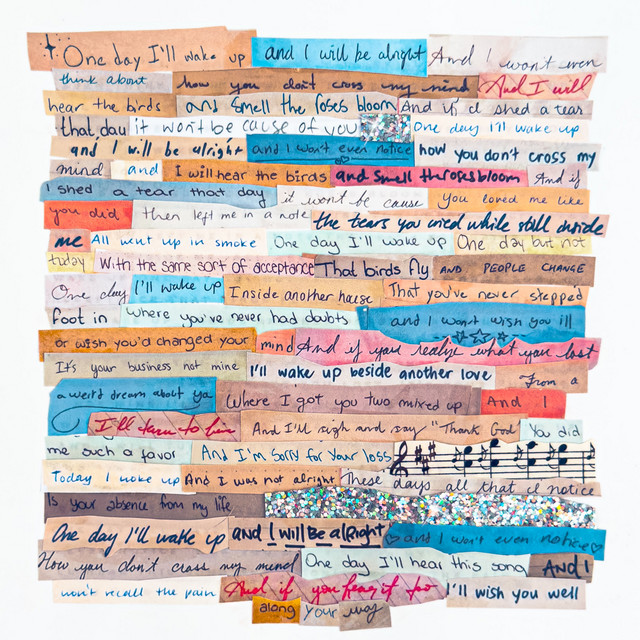 One day I'll wake up and I will be alright And I won't even
think about how you don't cross my mind And I will
hear the birds and smell the roses bloom And if I shed a tear
that day it won't be cause of you One day I'll wake up
and I will be alright and I won't even notice how you don't cross my
mind and I will hear the birds and smell th roses bloom And if
I shed a tear that day it won't be cause you loved me like
you did then left me in a note the tears you cried while still inside
me All went up in smoke One day I'll wake up One day but not
today With the same sort of acceptance That birds fly AND PEOPLE CHANGE
One day I'll wake up Inside another house That you've never stepped
foot in where you've never had doubts and I won't wish you ill
or wish you'd changed your mind And if you realize what you lost
It's your business not mine I'll wake up beside another love From a
a weird dream about ya Where I got you two mixed up And I
I'll turn to him And I'll sigh and say "Thank God You did
me such a favor And I'm sorry for your loss
Today I woke up And I was not alright These days all that I notice
Is your absence from my life
One day I'll wake up and I will Be alRight and I won't even notice
How you don't cross my mind One day I'll hear this song AND I
won't recall the pain And if you hear it too I'll wish you well
along your way